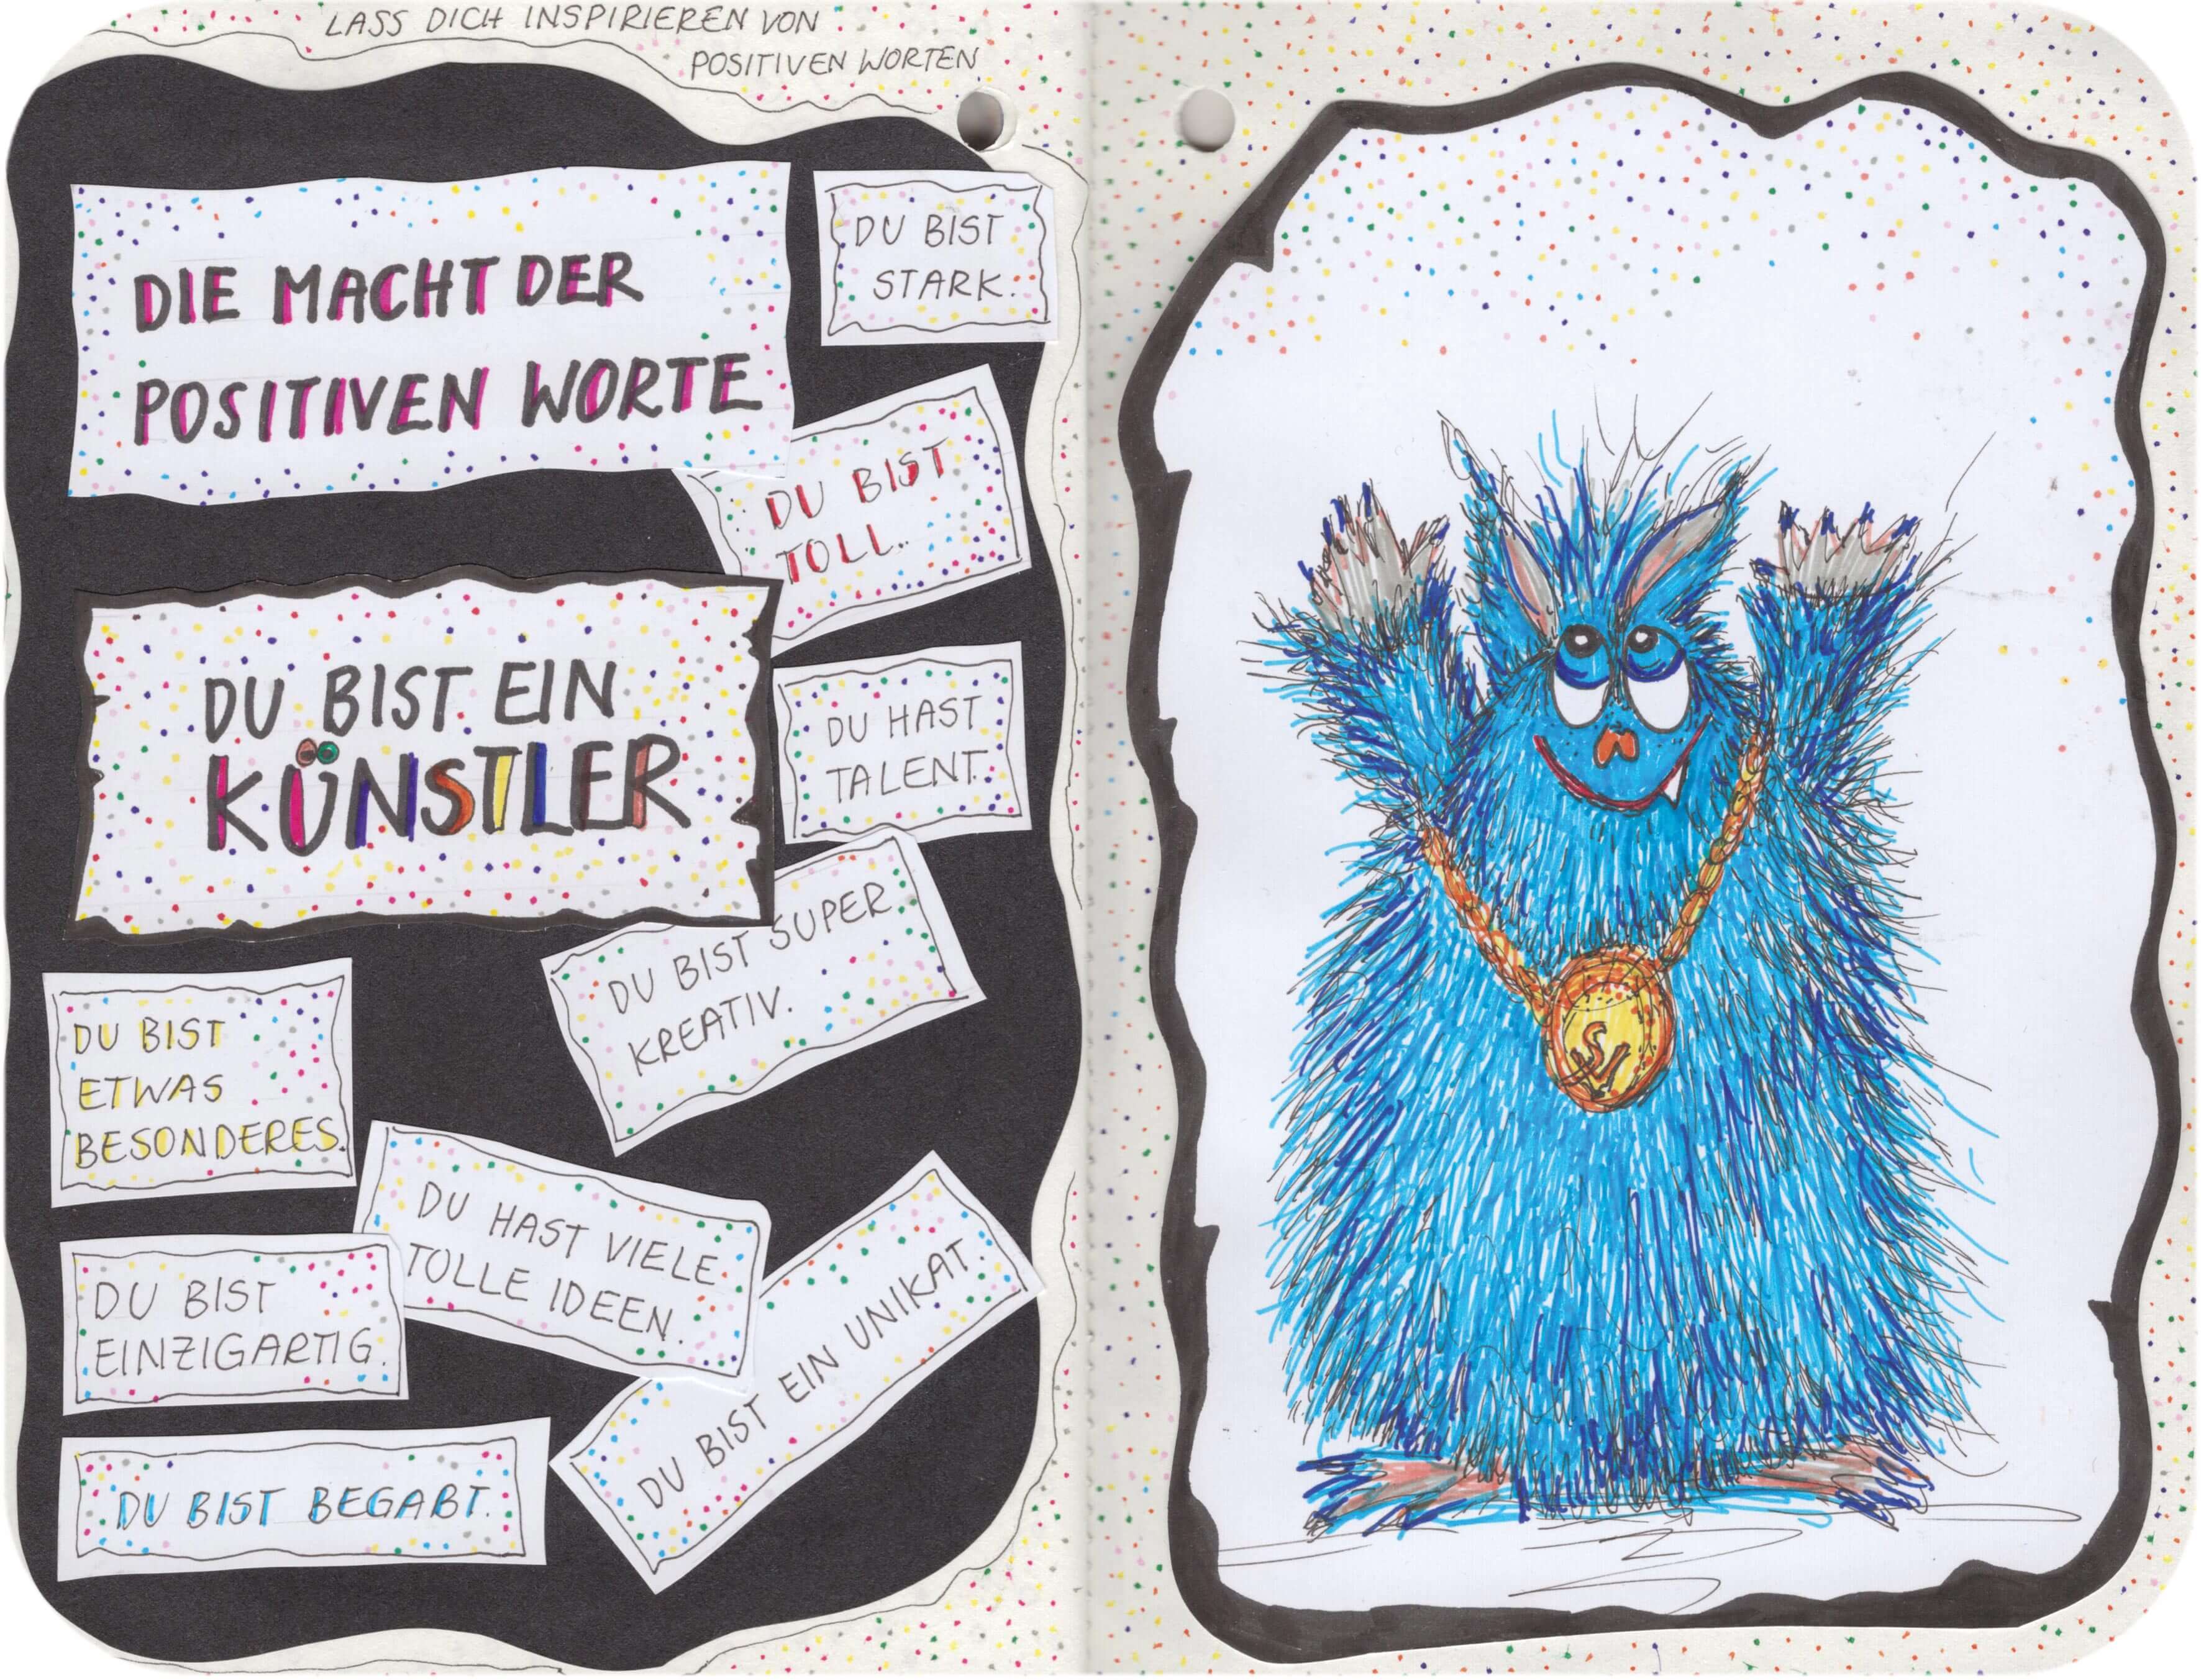 LASS DICH INSPIRIEREN VON
POSITIVEN WORTEN
DIE MACHT DER
POSITIVEN WORTE
DU BIST
STARK.
DU BIST
TOLL.
DU BIST EIN
KÜNSTLER
DU HAST
TALENT.
DU BIST SUPER
KREATIV.
DU BIST
ETWAS
BESONDERES.
DU HAST VIELE
TOLLE IDEEN.
DU BIST
EINZIGARTIG.
DU BIST EIN UNIKAT.
DU BIST BEGABT.